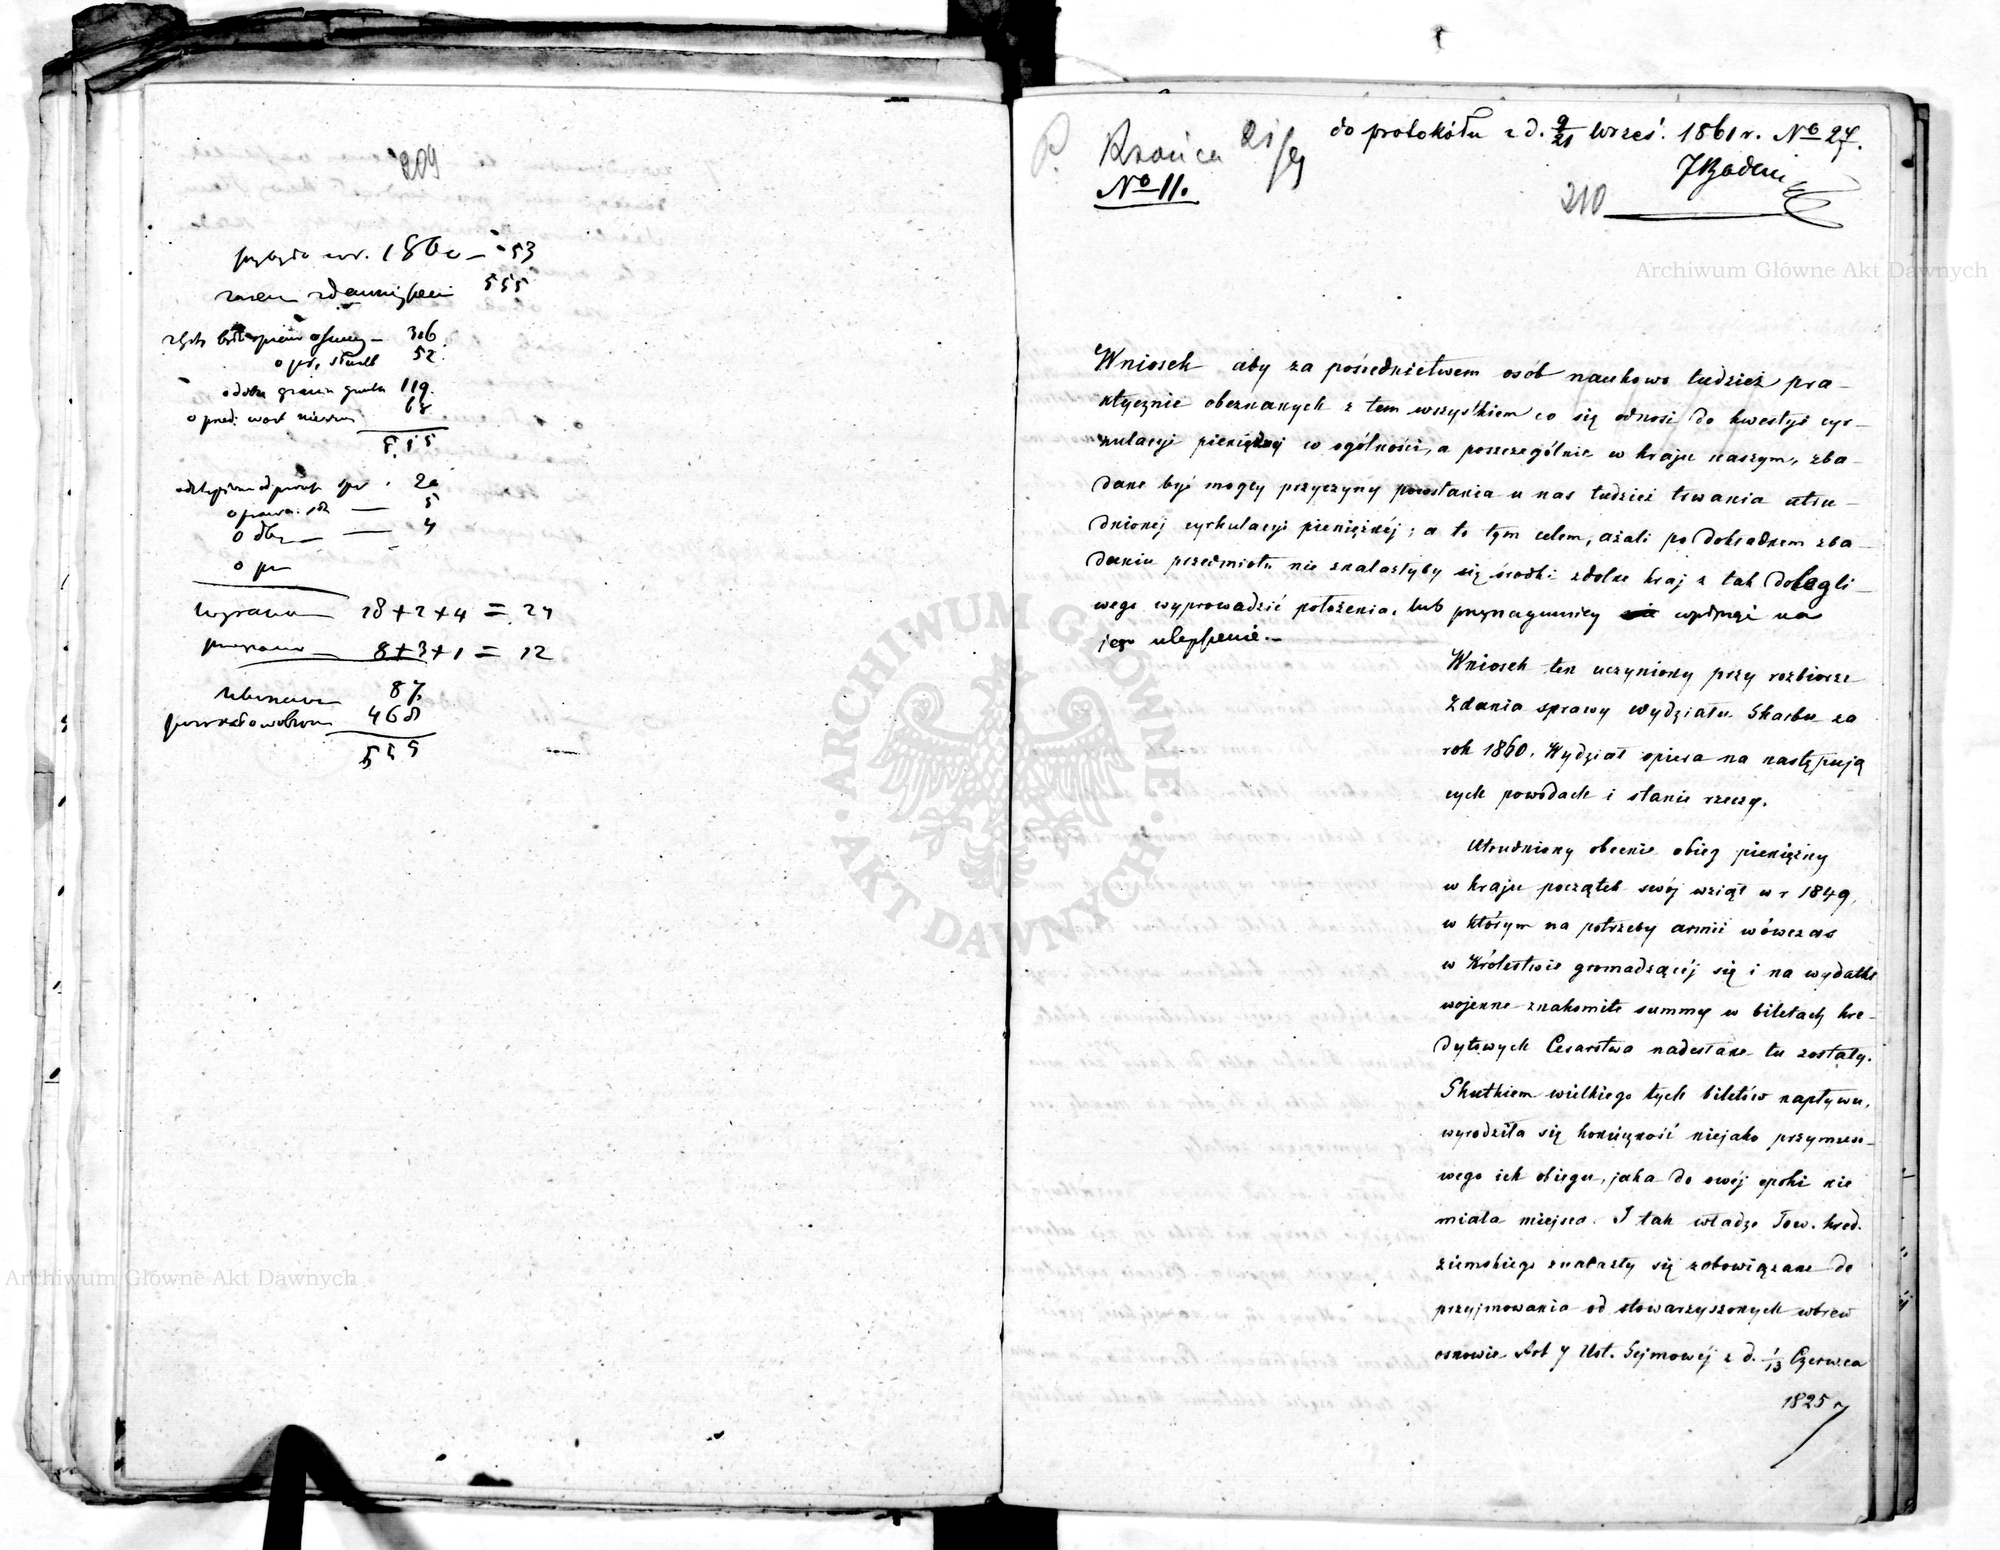 209
w r. 1860 — 53
555
306
52
119
68
555
20
5
4
18 + 2 + 4 = 24
8 + 3 + 1 = 12
87
468
555
do protokółu z d. 9/21 Wrześ. 1861 r. No 27.
21/9
No 11.
210
Wniosek aby za pośrednictwem osób naukowo tudzież pra-
ktycznie obeznanych z tem wszystkiem co się odnosi do kwestyi cyr-
kulacyi pieniężnej w ogólności, a poszczególnie w kraju naszym, zba-
dane być mogły przyczyny powstania u nas tudzież trwania utru-
dnionéj cyrkulacyi pieniężnéj; a to tym celem, ażali po dokładnem zba-
daniu przedmiotu nie znalazłyby się środki zdolne kraj z tak dolegli-
wego wyprowadzić położenia, lub przynajmniéj wpłynąć na
jego ulepszenie.—
Wniosek ten uczyniony przy rozbiorze
Zdania sprawy wydziału Skarbu za
rok 1860. Wydział opiera na następują
cych powodach i stanie rzeczy.
Utrudniony obecnie obieg pieniężny
w kraju początek swój wziął w r 1849,
w którym na potrzeby armii wówczas
w Królestwie gromadzącéj się i na wydatki
wojenne znakomite summy w biletach kre-
dytowych Cesarstwa nadesłane tu zostały.
Skutkiem wielkiego tych biletów napływu,
wyrodziła się konieczność niejako przymuso-
wego ich obiegu, jaka do owéj epoki nie
miała miejsca. I tak władze Tow. kred.
ziemskiego znalazły się zobowiązane do
przyjmowania od stowarzyszonych wbrew
osnowie Art 7 Ust. Sejmowéj z d. 1/13 Czerwca
1825 r
Archiwum Główne Akt Dawnych
Archiwum Główne Akt Dawnych
ARCHIWUM GŁÓWNE · AKT DAWNYCH ·